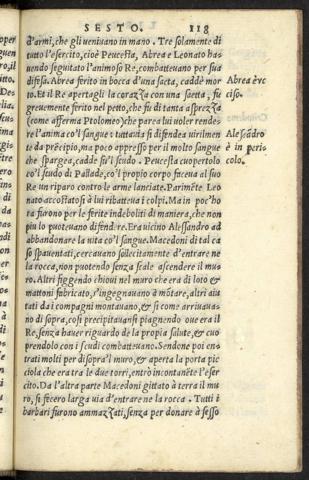 SESTO. 118
d'armi, che gli uenivano in mano. Tre solamente di
tutto l'esercito, cioè Peucesta, Abrea e Leonato ha‑
uendo seguitato l'animoso Re, combatteuano per sua
difesa. Abrea ferito in bocca d'una saetta, cadde mor
to. Et il Re apertagli la corazza con una saetta, fu
greuemente ferito nel petto, che fu di tanta asprezza
(come afferma Ptolomeo) che parea lui uoler rende‑
re l'anima co'l sangue: tuttauia si difendea uirilmen
te da precipio, ma poco appresso per il molto sangue
che spargea, cadde su'l scudo. Peucesta cuopertolo
co'l scudo di Pallade, co'l proprio corpo faceua al suo
Re un riparo contro le arme lanciate. Parimēte Leo
nato accostatosi à lui ributtaua i colpi. Ma in poc'ho
ra furono per le ferite indeboliti di maniera, che non
piu lo puoteuano difendere. Era uicino Alessandro ad
abbandonare la uita co'l sangue. Macedoni di tal ca
so spauentati, cercauano sollecitamente d'entrare ne
la rocca, non puotendo senza scale ascendere il mu‑
ro. Altri figgendo chioui nel muro che era di loto &
mattoni fabricato, s'ingegnauano à mōtare, altri aiu
tati da i compagni montauano, & si come arriuaua‑
no di sopra, cosi precipitauansi piagnendo oue era il
Re, senza hauer riguardo de la propia salute, & cuo
prendolo con i scudi combatteuano. Sendone poi en‑
trati molti per disopra'l muro, & aperta la porta pic
ciola che era tra le due torri, entrò incontanēte l'eser
cito. Da l'altra parte Macedoni gittato à terra il mu
ro, si fecero larga uia d'entrare ne la rocca. Tutti i
barbari furono ammazzati, senza per donare à sesso
Abrea è uc
ciso.
Alessādro
è in peri
colo.